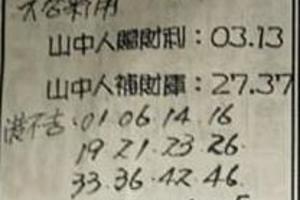 山中人賜財利：03.13
山中人補財庫：27.37
港不吉·01 06 14 16
19 21 23 26
33 36 42 46